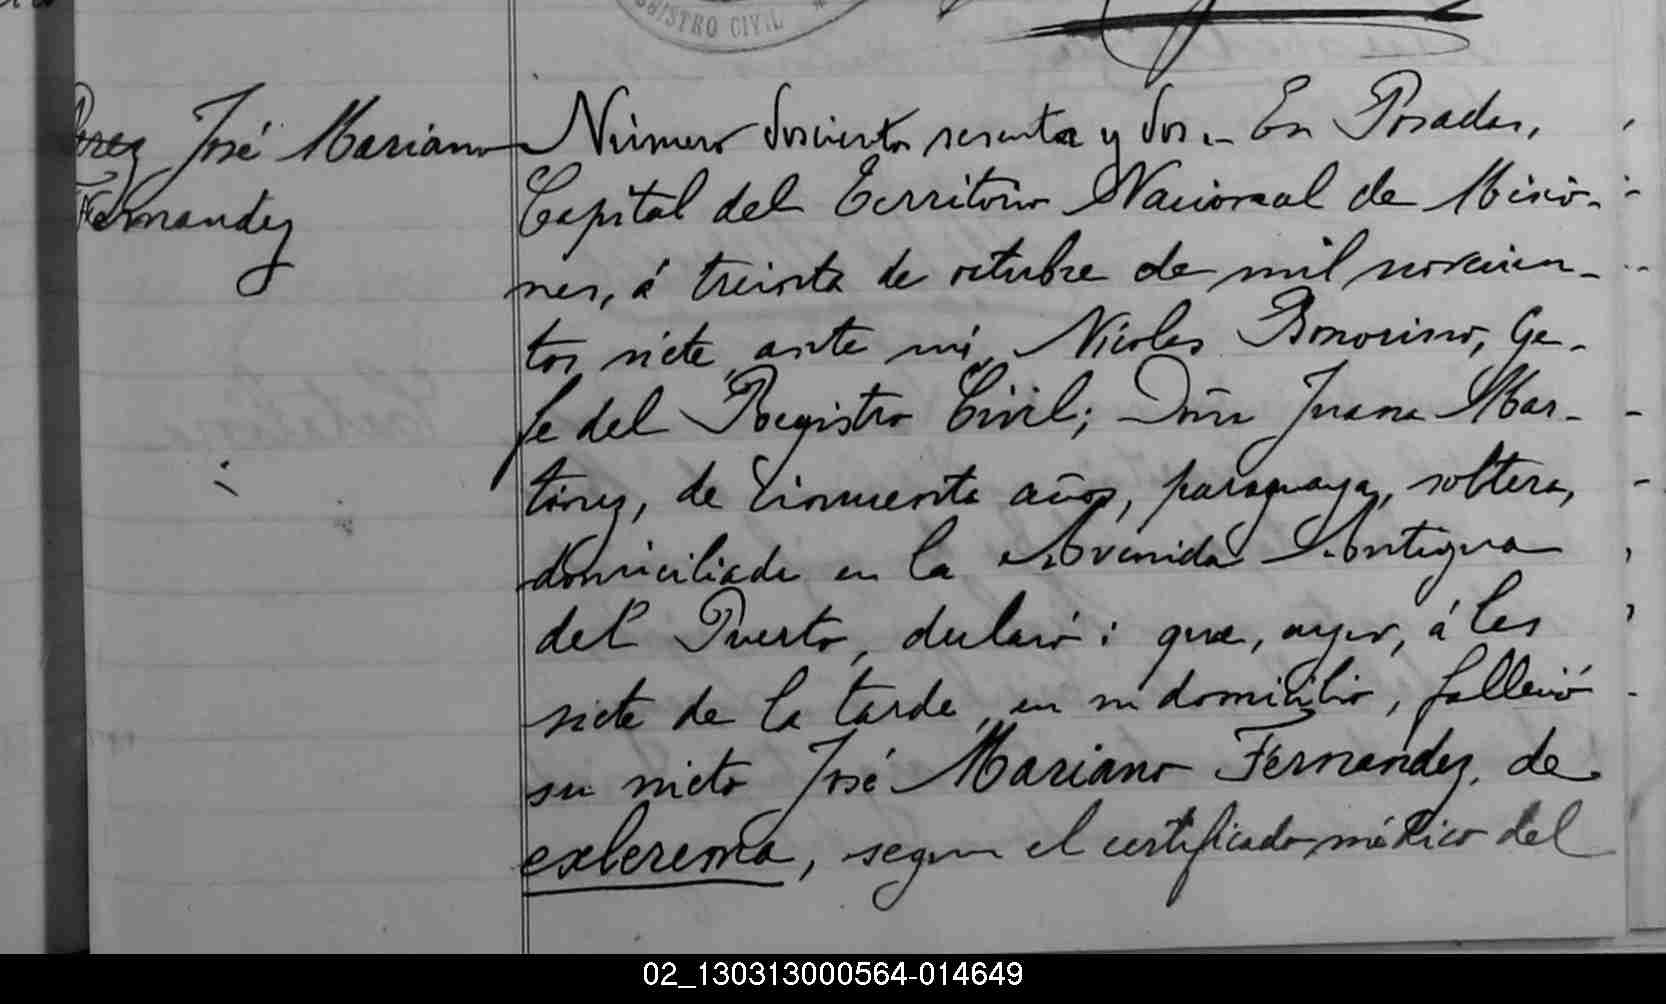 REGISTRO CIVIL
Perez José Mariano
Fernandez
Número doscientos sesenta y dos.- En Posadas,
Capital del Territorio Nacional de Misio-
nes, á treinta de octubre de mil novecien-
tos siete, ante mi, Nicolas Bonorino, Ge-
fe del Registro Civil; Doña Juana Mar-
tinez, de cincuenta años, paraguaya, soltera,
domiciliada en la Avenida Antigua
del Puerto, declaró: que, ayer, á las
siete de la tarde, en su domicilio, falleció
su nieto José Mariano Fernandez, de
exlerema, segun el certificado médico del
02_130313000564-014649